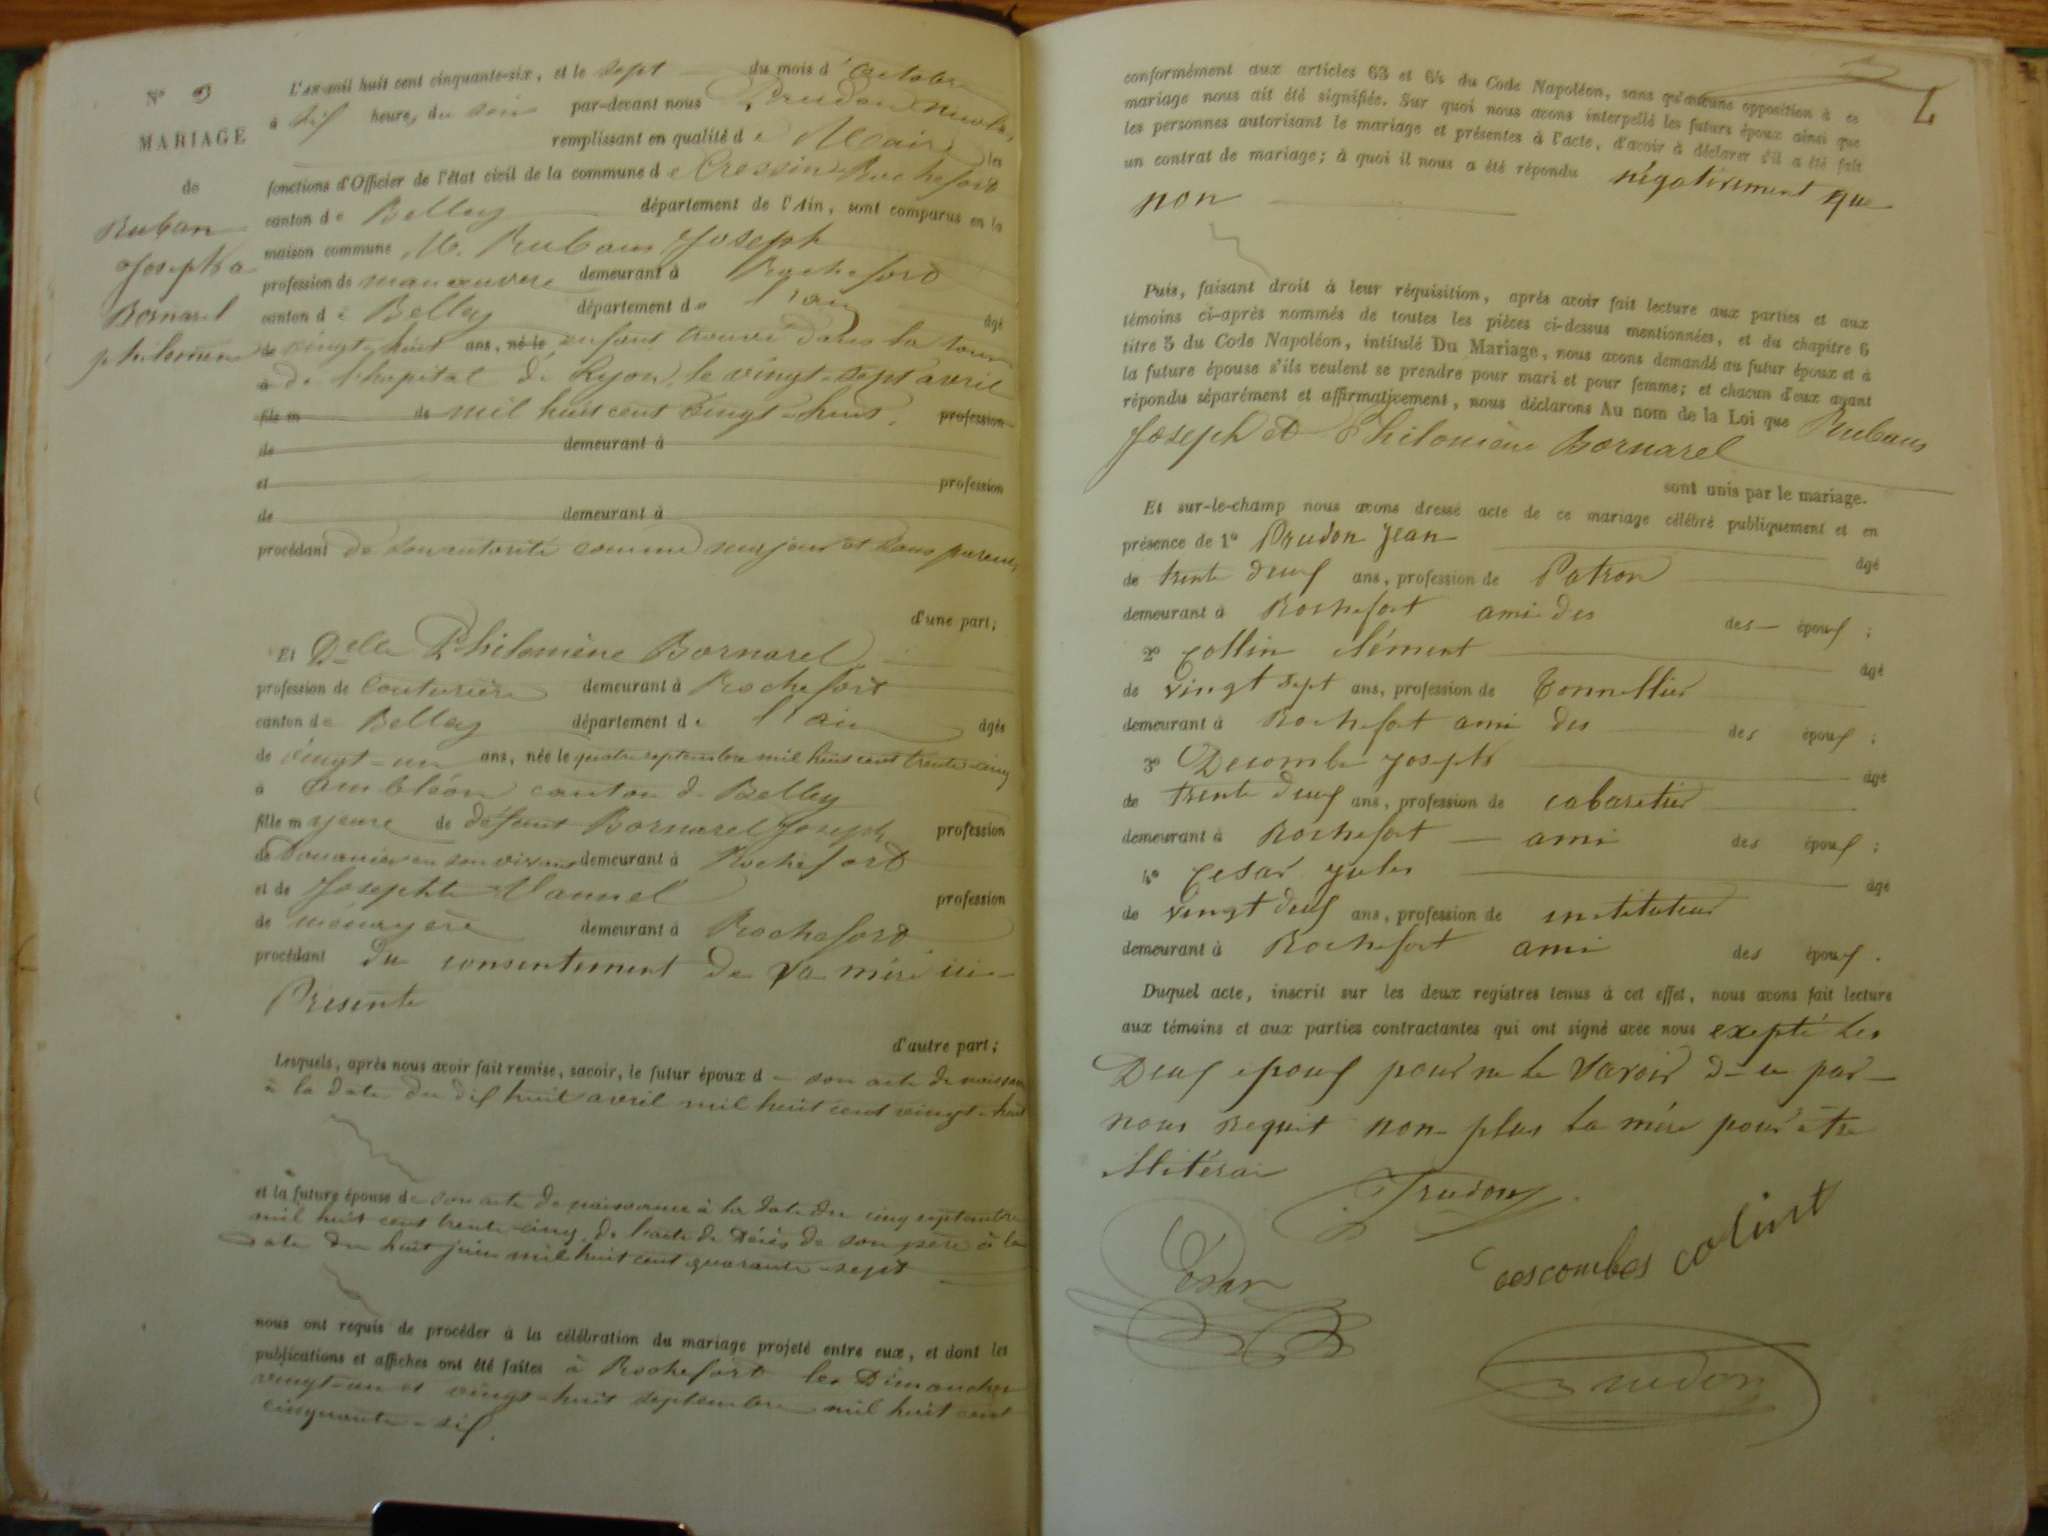 N° 3
MARIAGE
de
Ruban
Joseph a
Bornarel
philomène
L'AN mil huit cent cinquante-six, et le sept du mois d'octobre
à six heures du soir par-devant nous Prudon
remplissant en qualité de Maire les
fonctions d'Officier de l'état civil de la commune de Cressin Rochefort
canton de Belley département de l'Ain, sont comparus en la
maison commune M. Rubans Joseph
profession de manœuvre demeurant à Rochefort
canton de Belley département de l'ain âgé
de vingt-huit ans, né le enfant trouvé dans la tour
à de l'hopital de Lyon, le vingt-sept avril
fils m de mil huit cent vingt-huit. profession
de demeurant à
et profession
de demeurant à
procédant de son autorité comme majeur et sans parents
d'une part;
Et Delle Philomène Bornarel
profession de Couturière demeurant à Rochefort
canton de Belley département de l'ain âgés
de vingt-un ans, née le quatre septembre mil huit cent trente-cinq
à ambléon canton de Belley
fille majeure de défunt Bornarel Joseph profession
de Douanier en son vivant demeurant à Rochefort
et de Josephte Vannel profession
de ménagère demeurant à Rochefort
procédant du consentement de sa mère ici
Presente
d'autre part;
Lesquels, après nous avoir fait remise, savoir, le futur époux d- son acte de naissance
à la date du dix huit avril mil huit cent vingt-huit
et la future épouse de son acte de naissance à la date du cinq septembre
mil huit cent trente-cinq, de l'acte de décès de son père à la
date du huit juin mil huit cent quarante-sept
nous ont requis de procéder à la célébration du mariage projeté entre eux, et dont les
publications et affiches ont été faites à Rochefort les Dimanches
vingt-un et vingt-huit septembre mil huit cent
cinquante-six.
conformément aux articles 63 et 64 du Code Napoléon, sans qu'aucune opposition à ce
mariage nous ait été signifiée. Sur quoi nous avons interpellé les futurs époux ainsi que
les personnes autorisant le mariage et présentes à l'acte, d'avoir à déclarer s'il a été fait
un contrat de mariage; à quoi il nous a été répondu négativement que
non
Puis, faisant droit à leur réquisition, après avoir fait lecture aux parties et aux
témoins ci-après nommés de toutes les pièces ci-dessus mentionnées, et du chapitre 6
titre 5 du Code Napoléon, intitulé Du Mariage, nous avons demandé au futur époux et à
la future épouse s'ils veulent se prendre pour mari et pour femme; et chacun d'eux ayant
répondu séparément et affirmativement, nous déclarons Au nom de la Loi que Rubans
Joseph et Philomène Bornarel
sont unis par le mariage.
Et sur-le-champ nous avons dressé acte de ce mariage célébré publiquement et en
présence de 1° Prudon Jean âgé
de trente deux ans, profession de Patron
demeurant à Rochefort ami des des époux ;
2° Collin clément âgé
de vingt sept ans, profession de Tonnellier
demeurant à Rochefort ami des des époux ;
3° Decombe joseph âgé
de trente deux ans, profession de cabaretier
demeurant à Rochefort ami des époux ;
4° Cesar jules âgé
de vingt deux ans, profession de instituteur
demeurant à Rochefort ami des époux .
Duquel acte, inscrit sur les deux registres tenus à cet effet, nous avons fait lecture
aux témoins et aux parties contractantes qui ont signé avec nous exepté les
Deux epoux pour ne le savoir de ce par
nous requit non plus la mère pour être
illitérai
Prudon
César
descombes
colint
Prudon